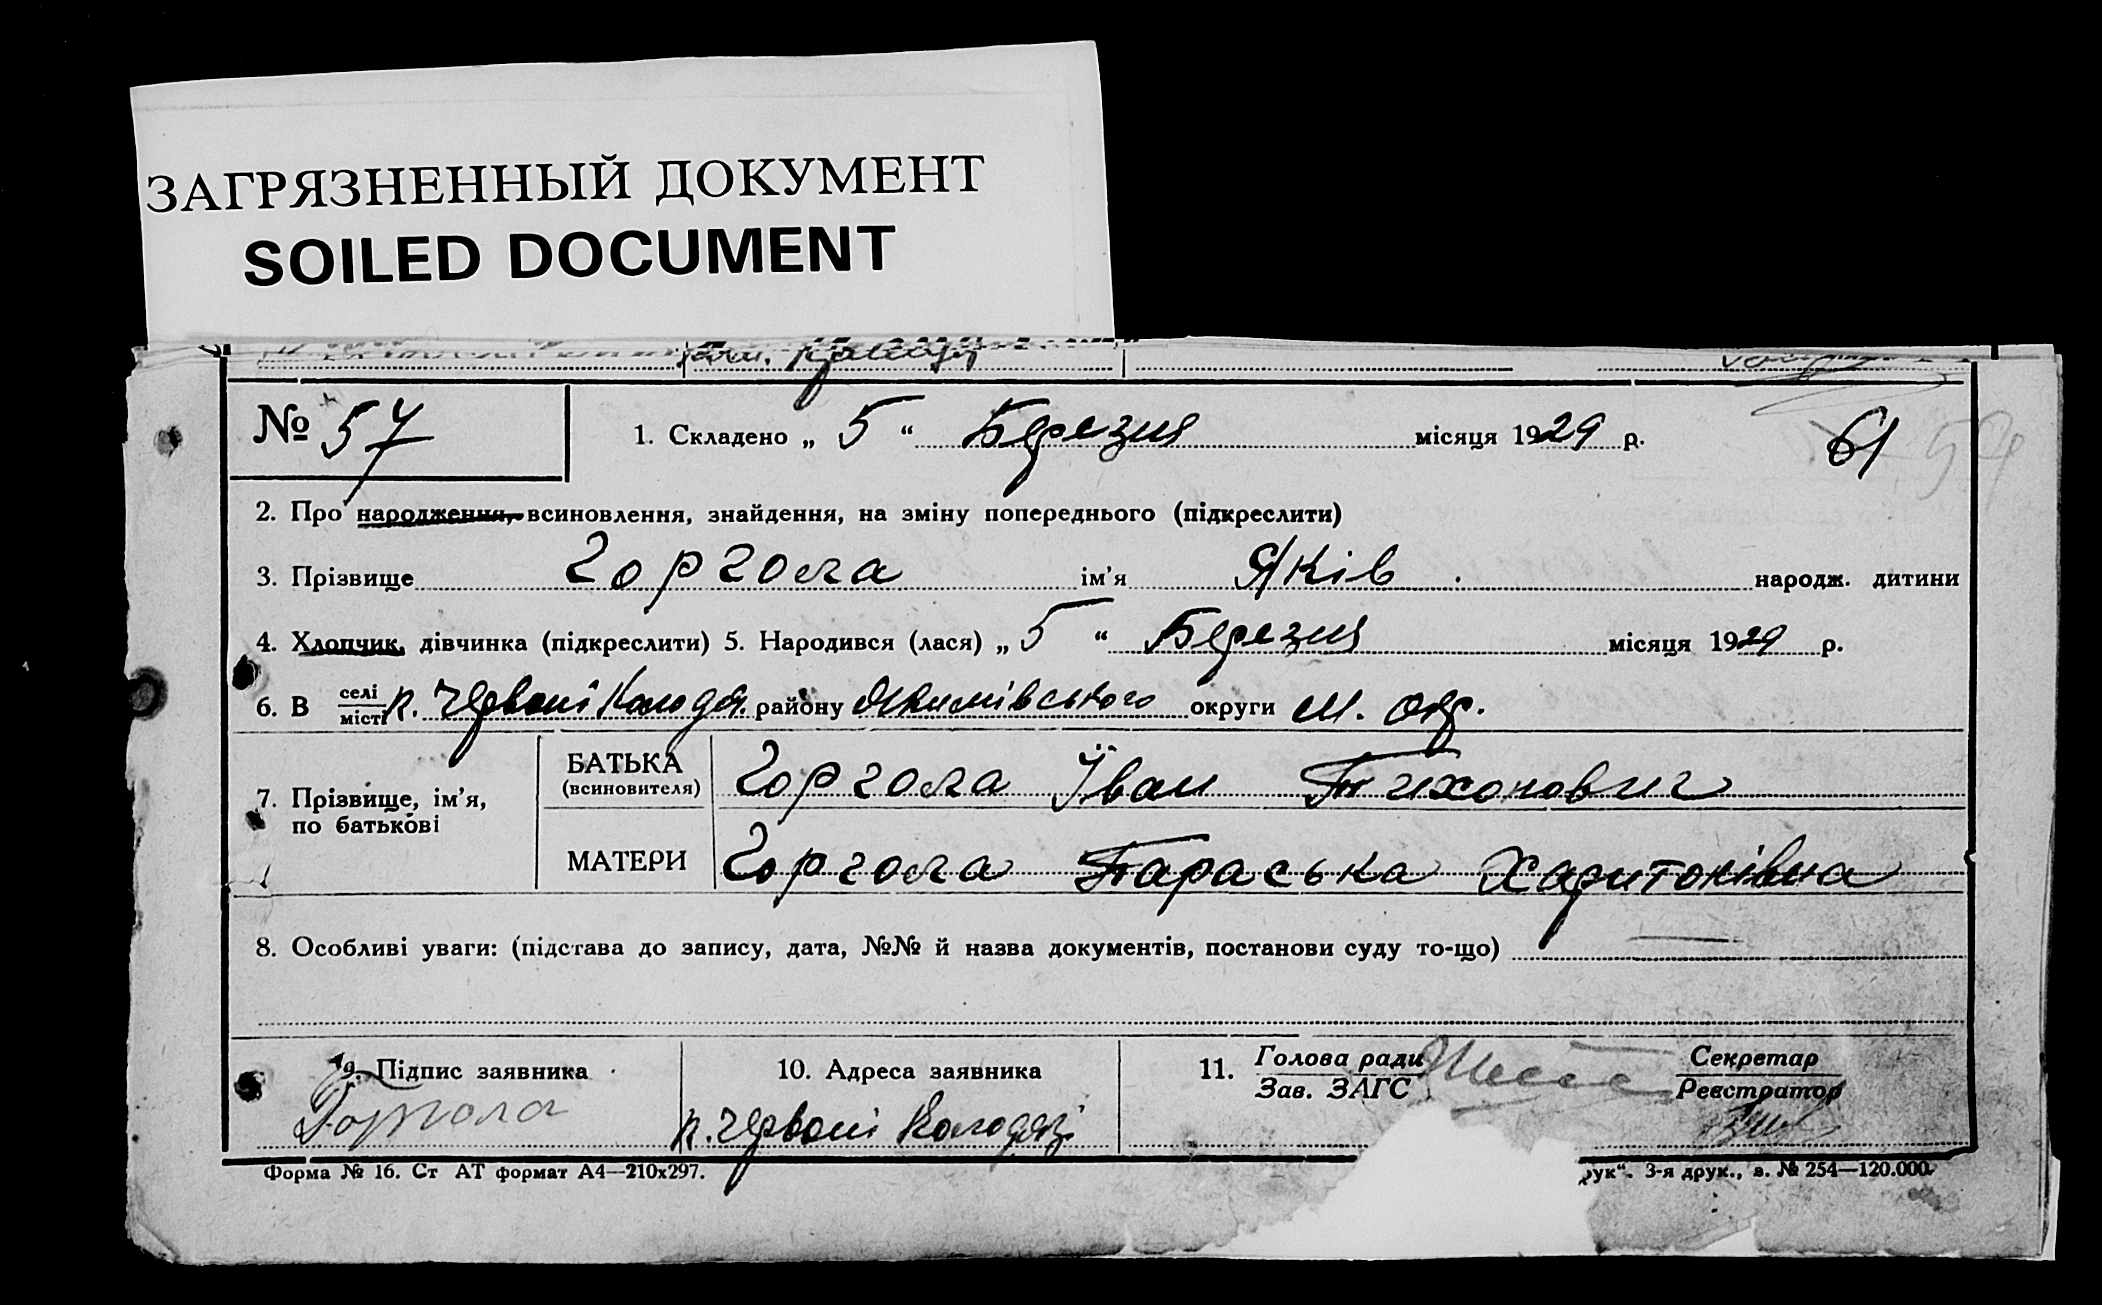 ЗАГРЯЗНЕННЫЙ ДОКУМЕНТ
SOILED DOCUMENT
№ 57
1. Складено „ 5 “ Березня місяця 1929 р. 61
2. Про народження, всиновлення, знайдення, на зміну попереднього (підкреслити)
3. Прізвище Горгола ім’я Яків народж. дитини
4. Хлопчик, дівчинка (підкреслити) 5. Народився (лася) „ 5 “ Березня місяця 1929 р.
6. В селі місті р. Червоні Колодязі району Якимівського округи М. окр.
7. Прізвище, ім’я, по батькові
БАТЬКА (всиновителя) Горгола Їван Тихонович
МАТЕРИ Горгола Параська Харитонівна
8. Особливі уваги: (підстава до запису, дата, №№ й назва документів, постанови суду то-що)
9. Підпис заявника Горгола
10. Адреса заявника р. Червоні Колодязі
11. Голова ради Зав. ЗАГС
Секретар Реєстратор
Форма № 16. Ст АТ формат А4—210x297.
рук“. 3-я друк., з. № 254—120.000.